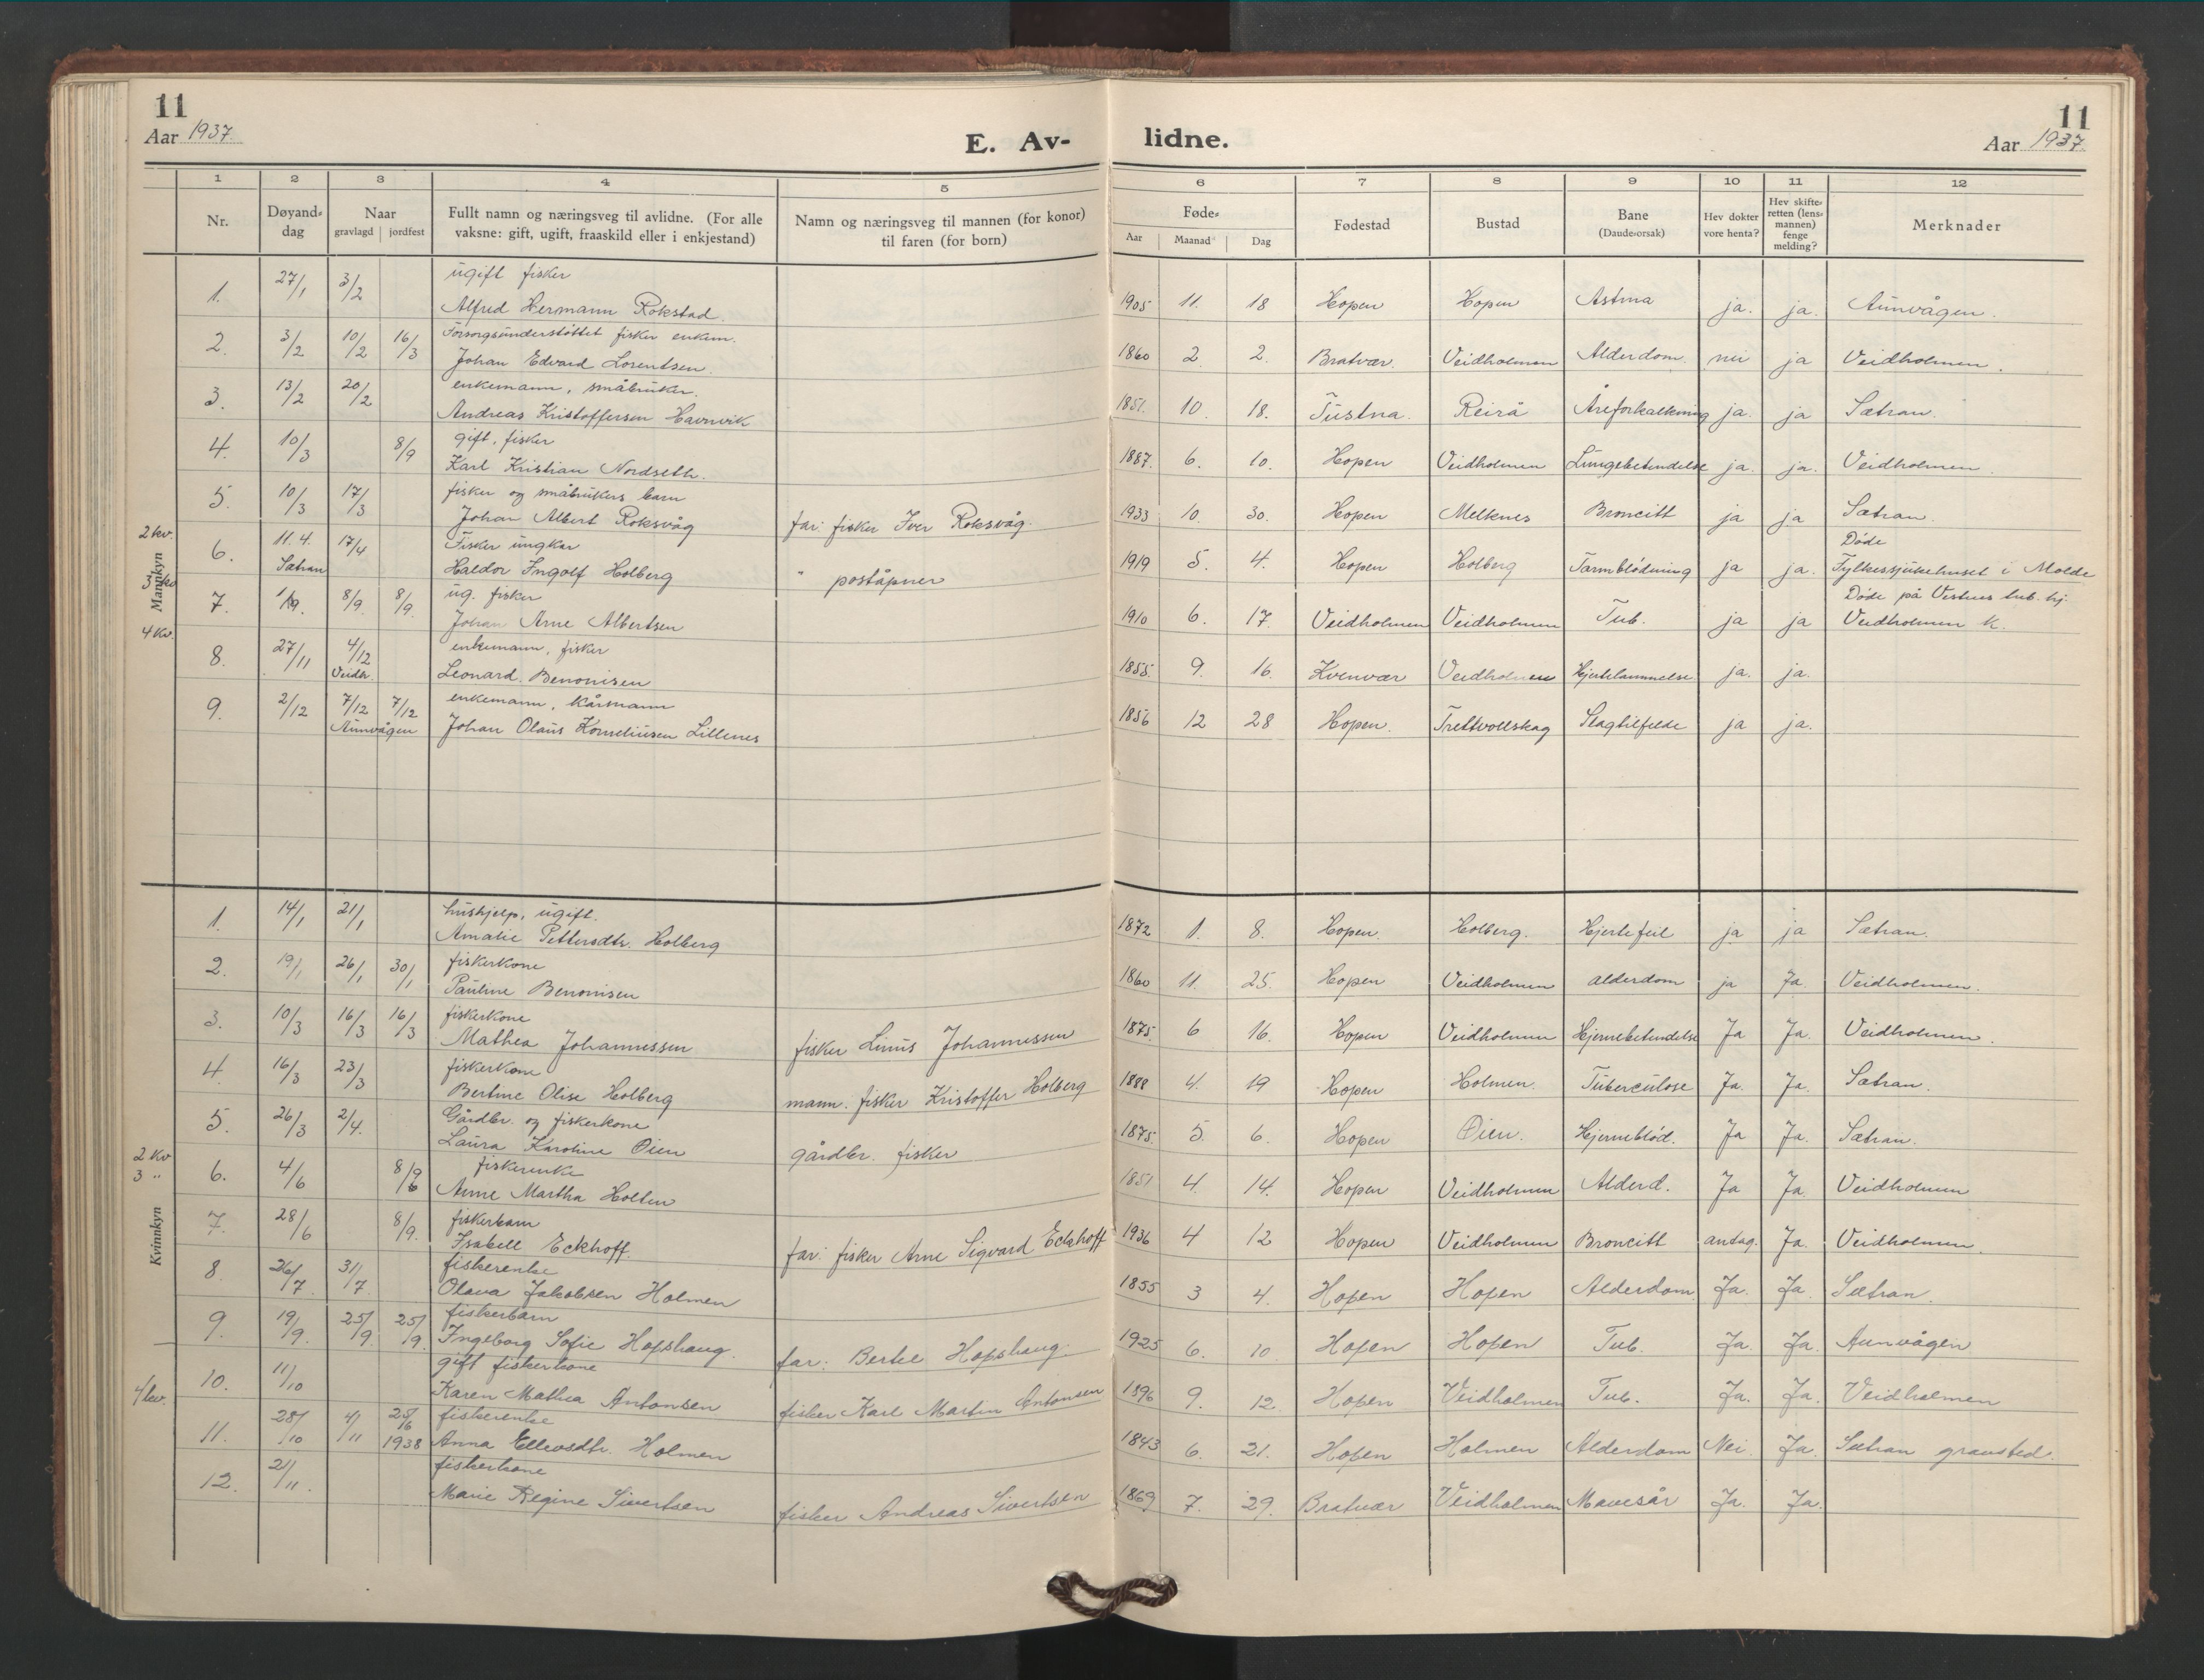 11
Aar 1937
E. Av-
lidne.
11
Aar 1937
1 2 3 4 5 6 7 8 9 10 11 12
Nr.
Døyand-dag
Naar
gravlagd | jordfest
Fullt namn og næringsveg til avlidne. (For alle vaksne: gift, ugift, fraaskild eller i enkjestand)
Namn og næringsveg til mannen (for konor) til faren (for born)
Føde-
Aar Maanad Dag
Fødestad
Bustad
Bane (Daude-orsak)
Hev dokter vore henta?
Hev skifte-retten (lens-mannen) fenge melding?
Merknader
Mankyn
1. 27/1 3/2 ugift fisker
Alfred Hermann Rokstad. 1905 11. 18 Hopen Hopen Astma ja. ja. Aunvågen.
2. 3/2 10/2 16/3 Forsorgsunderstöttet fisker enkem.
Johan Edvard Lorentsen. 1860 2 2. Bratvær. Veidholmen Alderdom. nei ja Veidholmen.
3. 13/2 20/2 enkemann, småbruker.
Andreas Kristoffersen Havnvik 1851. 10. 18. Tustna. Reirå Åreforkalkning ja. ja Sætran.
4. 10/3 8/9 gift, fisker
Karl Kristian Nordseth. 1887. 6. 10. Hopen Veidholmen Lungebetendelse ja. ja. Veidholmen.
5. 10/3 17/3 fisker og småbrukers barn
Johan Albert Roksvåg far: fisker Iver Roksvåg. 1933 10. 30. Hopen Melknes Broncitt ja ja Sætran.
2 kv.
6. 11.4. 17/4 Fisker ungkar Døde
Sætran Haldor Ingolf Holberg " poståpner 1919 5. 4. Hopen Holberg Tarmblödning ja ja. Fylkessjukehuset i Molde
7. 8/9. 8/9. ug. fisker Døde på Vestnes tub. hj.
Johan Arne Albertsen 1910 6. 17. Veidholmen Veidholmen Tub. ja ja Veidholmen k.
4 kv.
8. 27/11 4/12 enkemann, fisker
Veidh. Leonard. Benonisen 1855. 9. 16. Kvenvær Veidholmen Hjertelammelse ja. ja.
9. 2/12 7/12 7/12 enkemann, kårmann
Aunvågen Johan Olaus Korneliusen Lillenes 1856 12 28 Hopen. Trettvollskag Slagtilfelde ja ja.
Kvinnkyn
1. 14/1 21/1 hushjelp, ugift.
Amalie Pettersdtr. Holberg 1872 1. 8. Hopen. Holberg. Hjertefeil ja ja Sætran.
2. 19/1 26/1 30/1 fiskerkone
Pauline Benonisen 1860 11. 25. Hopen Veidholmen alderdom ja Ja Veidholmen.
3. 10/3 16/3 16/3 fiskerkone
Mathea Johannessen fisker Linus Johannessen 1875. 6 16. Hopen Veidholmen Hjernebetendelse Ja Ja. Veidholmen.
4. 16/3 23/3 fiskerkone
Bertine Olise Holberg mann. fisker Kristoffer Holberg 1888 4. 19 Hopen Holmen. Tuberculose Ja. Ja. Sætran.
5. 26/3 2/4. Gårdbr. og fiskerkone
Laura Karoline Øien gårdbr. fisker 1875. 5. 6. Hopen Øien. Hjerneblød. Ja Ja. Sætran.
2 kv
3 "
6. 4/6 fiskerenke
Anne Martha Holten 1851 4. 14. Hopen Veidholmen Alderd. Ja Ja. Veidholmen
7. 28/6 8/9. fiskerbarn
Isabell Eckhoff. far: fisker Arne Sigvard Eckhoff 1936 4 12 Hopen Veidholmen Broncitt antag. Ja. Veidholmen.
8. 26/7. 31/7. fiskerenke
Olava Jakobsen Holmen 1855 3 4. Hopen Hopen Alderdom Ja. Ja. Sætran.
9. 19/9. 25/9. 25/9. fiskerbarn
Ingeborg Sofie Hopshaug. far: Hopshaug. 1925 6. 10. Hopen Hopen Tub. Ja. Ja. Aunvågen
4 kv.
10. 11/10 gift fiskerkone
Karen Mathea Antonsen fisker Karl Martin Antonsen 1896 9. 12. Hopen Veidholmen Tub. Ja. Ja. Veidholmen
11. 28/10 4/11 1938 fiskerenke
Anna Holmen 1843 6. 21. Hopen Holmen Alderdom Nei. Ja. Sætran gravsted.
12. 21/11. fiskerkone
Marie Regine Sivertsen fisker Andreas Sivertsen 1869 7. 29. Bratvær Veidholmen Mavesår Ja. Ja.